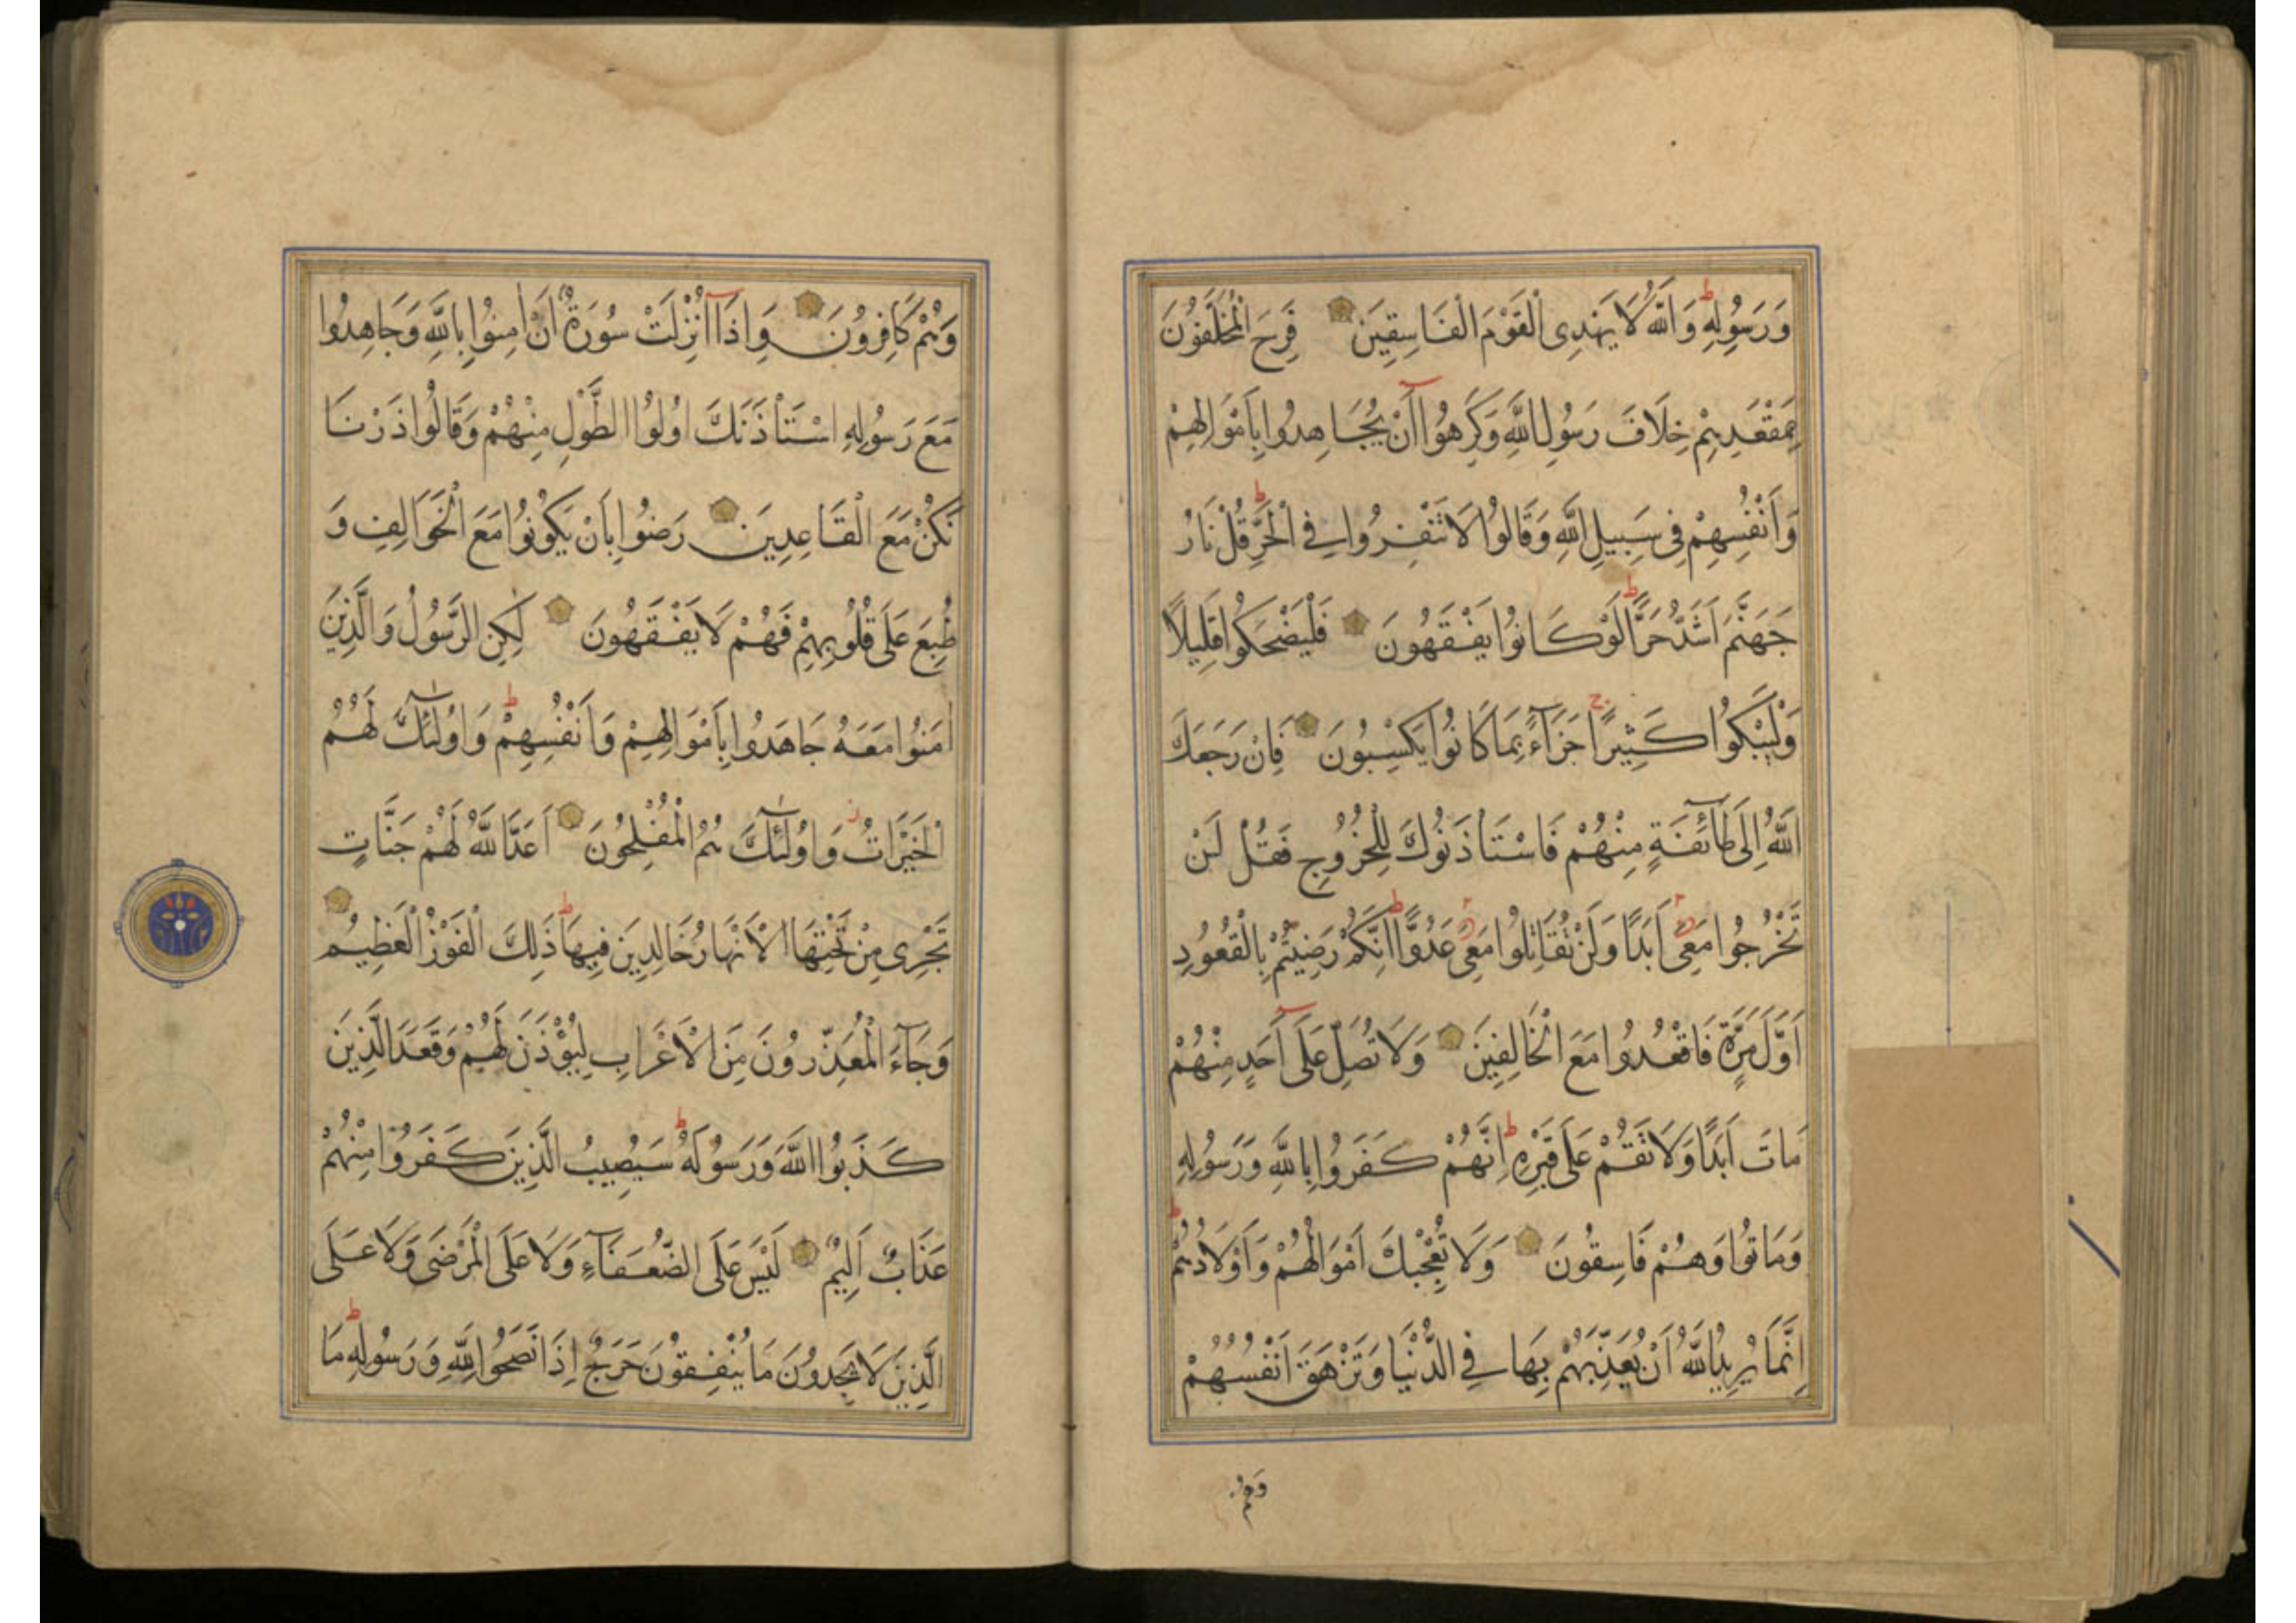 وَرَسُولِهِ ط وَاَللّٰهُ لَا يَهْدِى الْقَوْمَ الْفَاسِقِينَ فَرِحَ الْمُخَلَّفُونَ
بِمَقْعَدِهِمْ خِلَافَ رَسُولِ اللّٰهِ وَكَرِهُوا اَنْ يُجَاهِدُوا بِاَمْوَالِهِمْ
وَاَنْفُسِهِمْ فِى سَبِيلِ اللّٰهِ وَقَالُوا لَا تَنْفِرُوا فِى الْحَرِّ ط قُلْ نَارُ
جَهَنَّمَ اَشَدُّ حَرًّا ط لَوْ كَانُوا يَفْقَهُونَ فَلْيَضْحَكُوا قَلِيلًا
وَلْيَبْكُوا كَثِيرًا ج جَزَآءً بِمَا كَانُوا يَكْسِبُونَ فَاِنْ رَجَعَكَ
اللّٰهُ اِلَى طَآئِفَةٍ مِنْهُمْ فَاسْتَأْذَنُوكَ لِلْخُرُوجِ فَقُلْ لَنْ
تَخْرُجُوا مَعِىَ اَبَدًا وَلَنْ تُقَاتِلُوا مَعِىَ عَدُوًّا ط اِنَّكُمْ رَضِيتُمْ بِالْقُعُودِ
اَوَّلَ مَرَّةٍ فَاقْعُدُوا مَعَ الْخَالِفِينَ وَلَا تُصَلِّ عَلَى اَحَدٍ مِنْهُمْ
مَاتَ اَبَدًا وَلَا تَقُمْ عَلَى قَبْرِهِ ط اِنَّهُمْ كَفَرُوا بِاللّٰهِ وَرَسُولِهِ
وَمَاتُوا وَهُمْ فَاسِقُونَ وَلَا تُعْجِبْكَ اَمْوَالُهُمْ وَاَوْلَادُهُمْ ط
اِنَّمَا يُرِيدُ اللّٰهُ اَنْ يُعَذِّبَهُمْ بِهَا فِى الدُّنْيَا وَتَزْهَقَ اَنْفُسُهُمْ
وَهُمْ
وَهُمْ كَافِرُونَ وَاِذَا اُنْزِلَتْ سُورَةٌ اَنْ اٰمِنُوا بِاللّٰهِ وَجَاهِدُوا
مَعَ رَسُولِهِ اسْتَأْذَنَكَ اُولُوا الطَّوْلِ مِنْهُمْ وَقَالُوا ذَرْنَا
نَكُنْ مَعَ الْقَاعِدِينَ رَضُوا بِاَنْ يَكُونُوا مَعَ الْخَوَالِفِ وَ
طُبِعَ عَلَى قُلُوبِهِمْ فَهُمْ لَا يَفْقَهُونَ لٰكِنِ الرَّسُولُ وَالَّذِينَ
اٰمَنُوا مَعَهُ جَاهَدُوا بِاَمْوَالِهِمْ وَاَنْفُسِهِمْ ط وَاُولٰٓئِكَ لَهُمُ
الْخَيْرَاتُ ز وَاُولٰٓئِكَ هُمُ الْمُفْلِحُونَ اَعَدَّ اللّٰهُ لَهُمْ جَنَّاتٍ
تَجْرِى مِنْ تَحْتِهَا الْاَنْهَارُ خَالِدِينَ فِيهَا ط ذٰلِكَ الْفَوْزُ الْعَظِيمُ
وَجَآءَ الْمُعَذِّرُونَ مِنَ الْاَعْرَابِ لِيُؤْذَنَ لَهُمْ وَقَعَدَ الَّذِينَ
كَذَبُوا اللّٰهَ وَرَسُولَهُ ط سَيُصِيبُ الَّذِينَ كَفَرُوا مِنْهُمْ
عَذَابٌ اَلِيمٌ لَيْسَ عَلَى الضُّعَفَآءِ وَلَا عَلَى الْمَرْضَى وَلَا عَلَى
الَّذِينَ لَا يَجِدُونَ مَا يُنْفِقُونَ حَرَجٌ اِذَا نَصَحُوا لِلّٰهِ وَرَسُولِهِ ط مَا